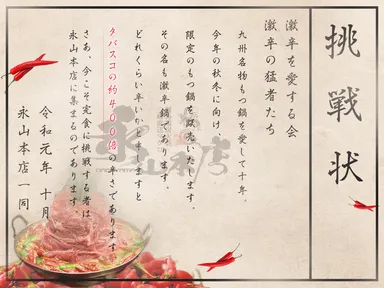 挑戦状
激辛を愛する会
激辛の猛者たち
九州名物もつ鍋を愛して十年。
今年の秋冬に向け、
限定のもつ鍋を販売いたします。
その名も激辛鍋であります。
どれくらい辛いかとしますと
タバスコの約400倍の辛さであります
さあ、今こそ完食に挑戦する者は
永山本店に集まるのであります
令和元年 十月
永山本店 一同
本店